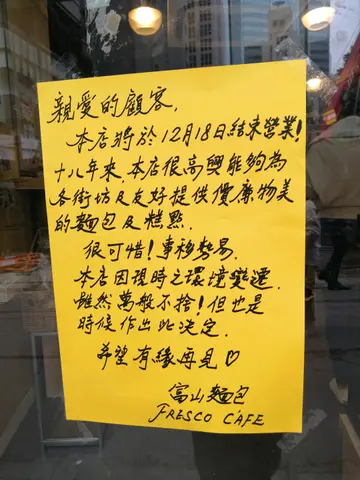 親愛的顧客,
本店將於12月18日結束營業!
十八年來,本店很高興能夠為
各街坊及友好提供價廉物美
的麵包及糕點.
很可惜!事移勢易,
本店因現時之環境變遷,
雖然萬般不捨!但也是
時候作出此決定.
希望有緣再見♡
富山麵包
FRESCO CAFE